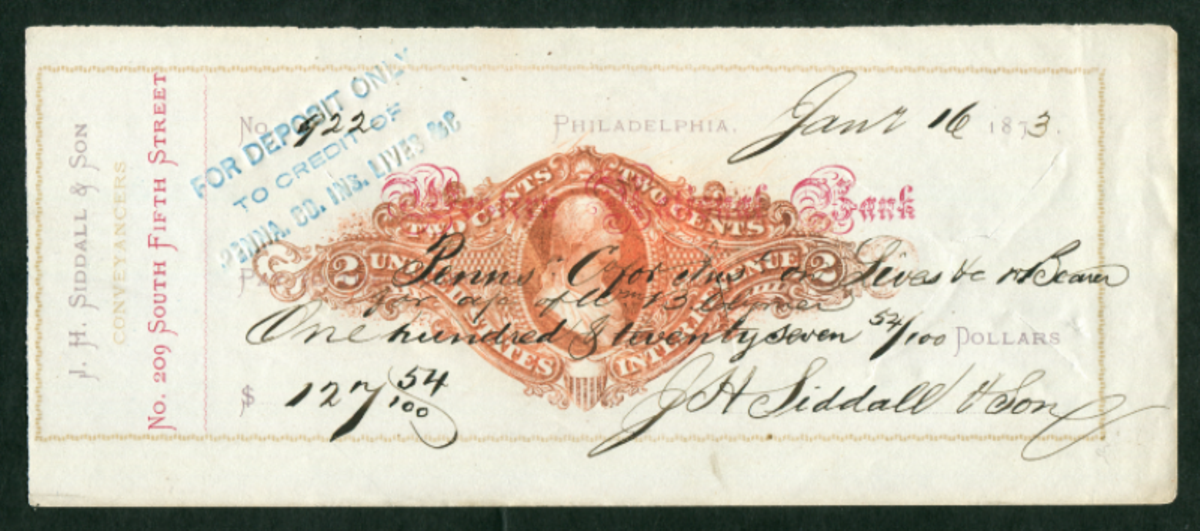 J. H. SIDDALL & SON
CONVEYANCERS
No. 209 SOUTH FIFTH STREET
FOR DEPOSIT ONLY
TO CREDIT OF
PENNA. CO. INS. LIVES &C
No. 922
PHILADELPHIA, Janr 16 1873.
National Bank
TWO CENTS TWO CENTS
2 UNITED STATES INTER. REVENUE 2
Penna Co for Ins on Lives &c or Bearer
for a/c of
One hundred & twenty seven 54/100 DOLLARS
$ 127 54/100
J H Siddall & Son